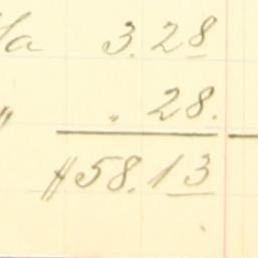 3.28
" . 28.
$58.13